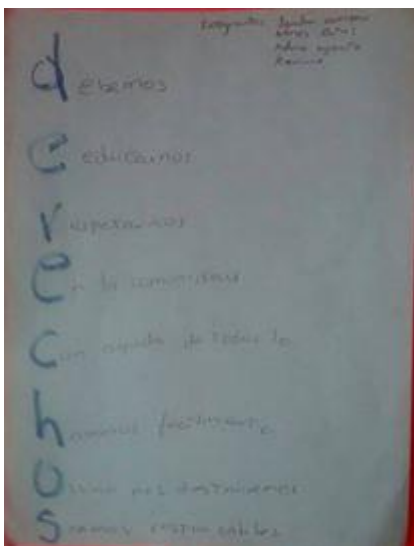 Integrantes
debemos
educarnos
respetarnos
en la comunidad
con ayuda de todos lo
haremos facilmente
o sino nos destruiremos
seamos responsables